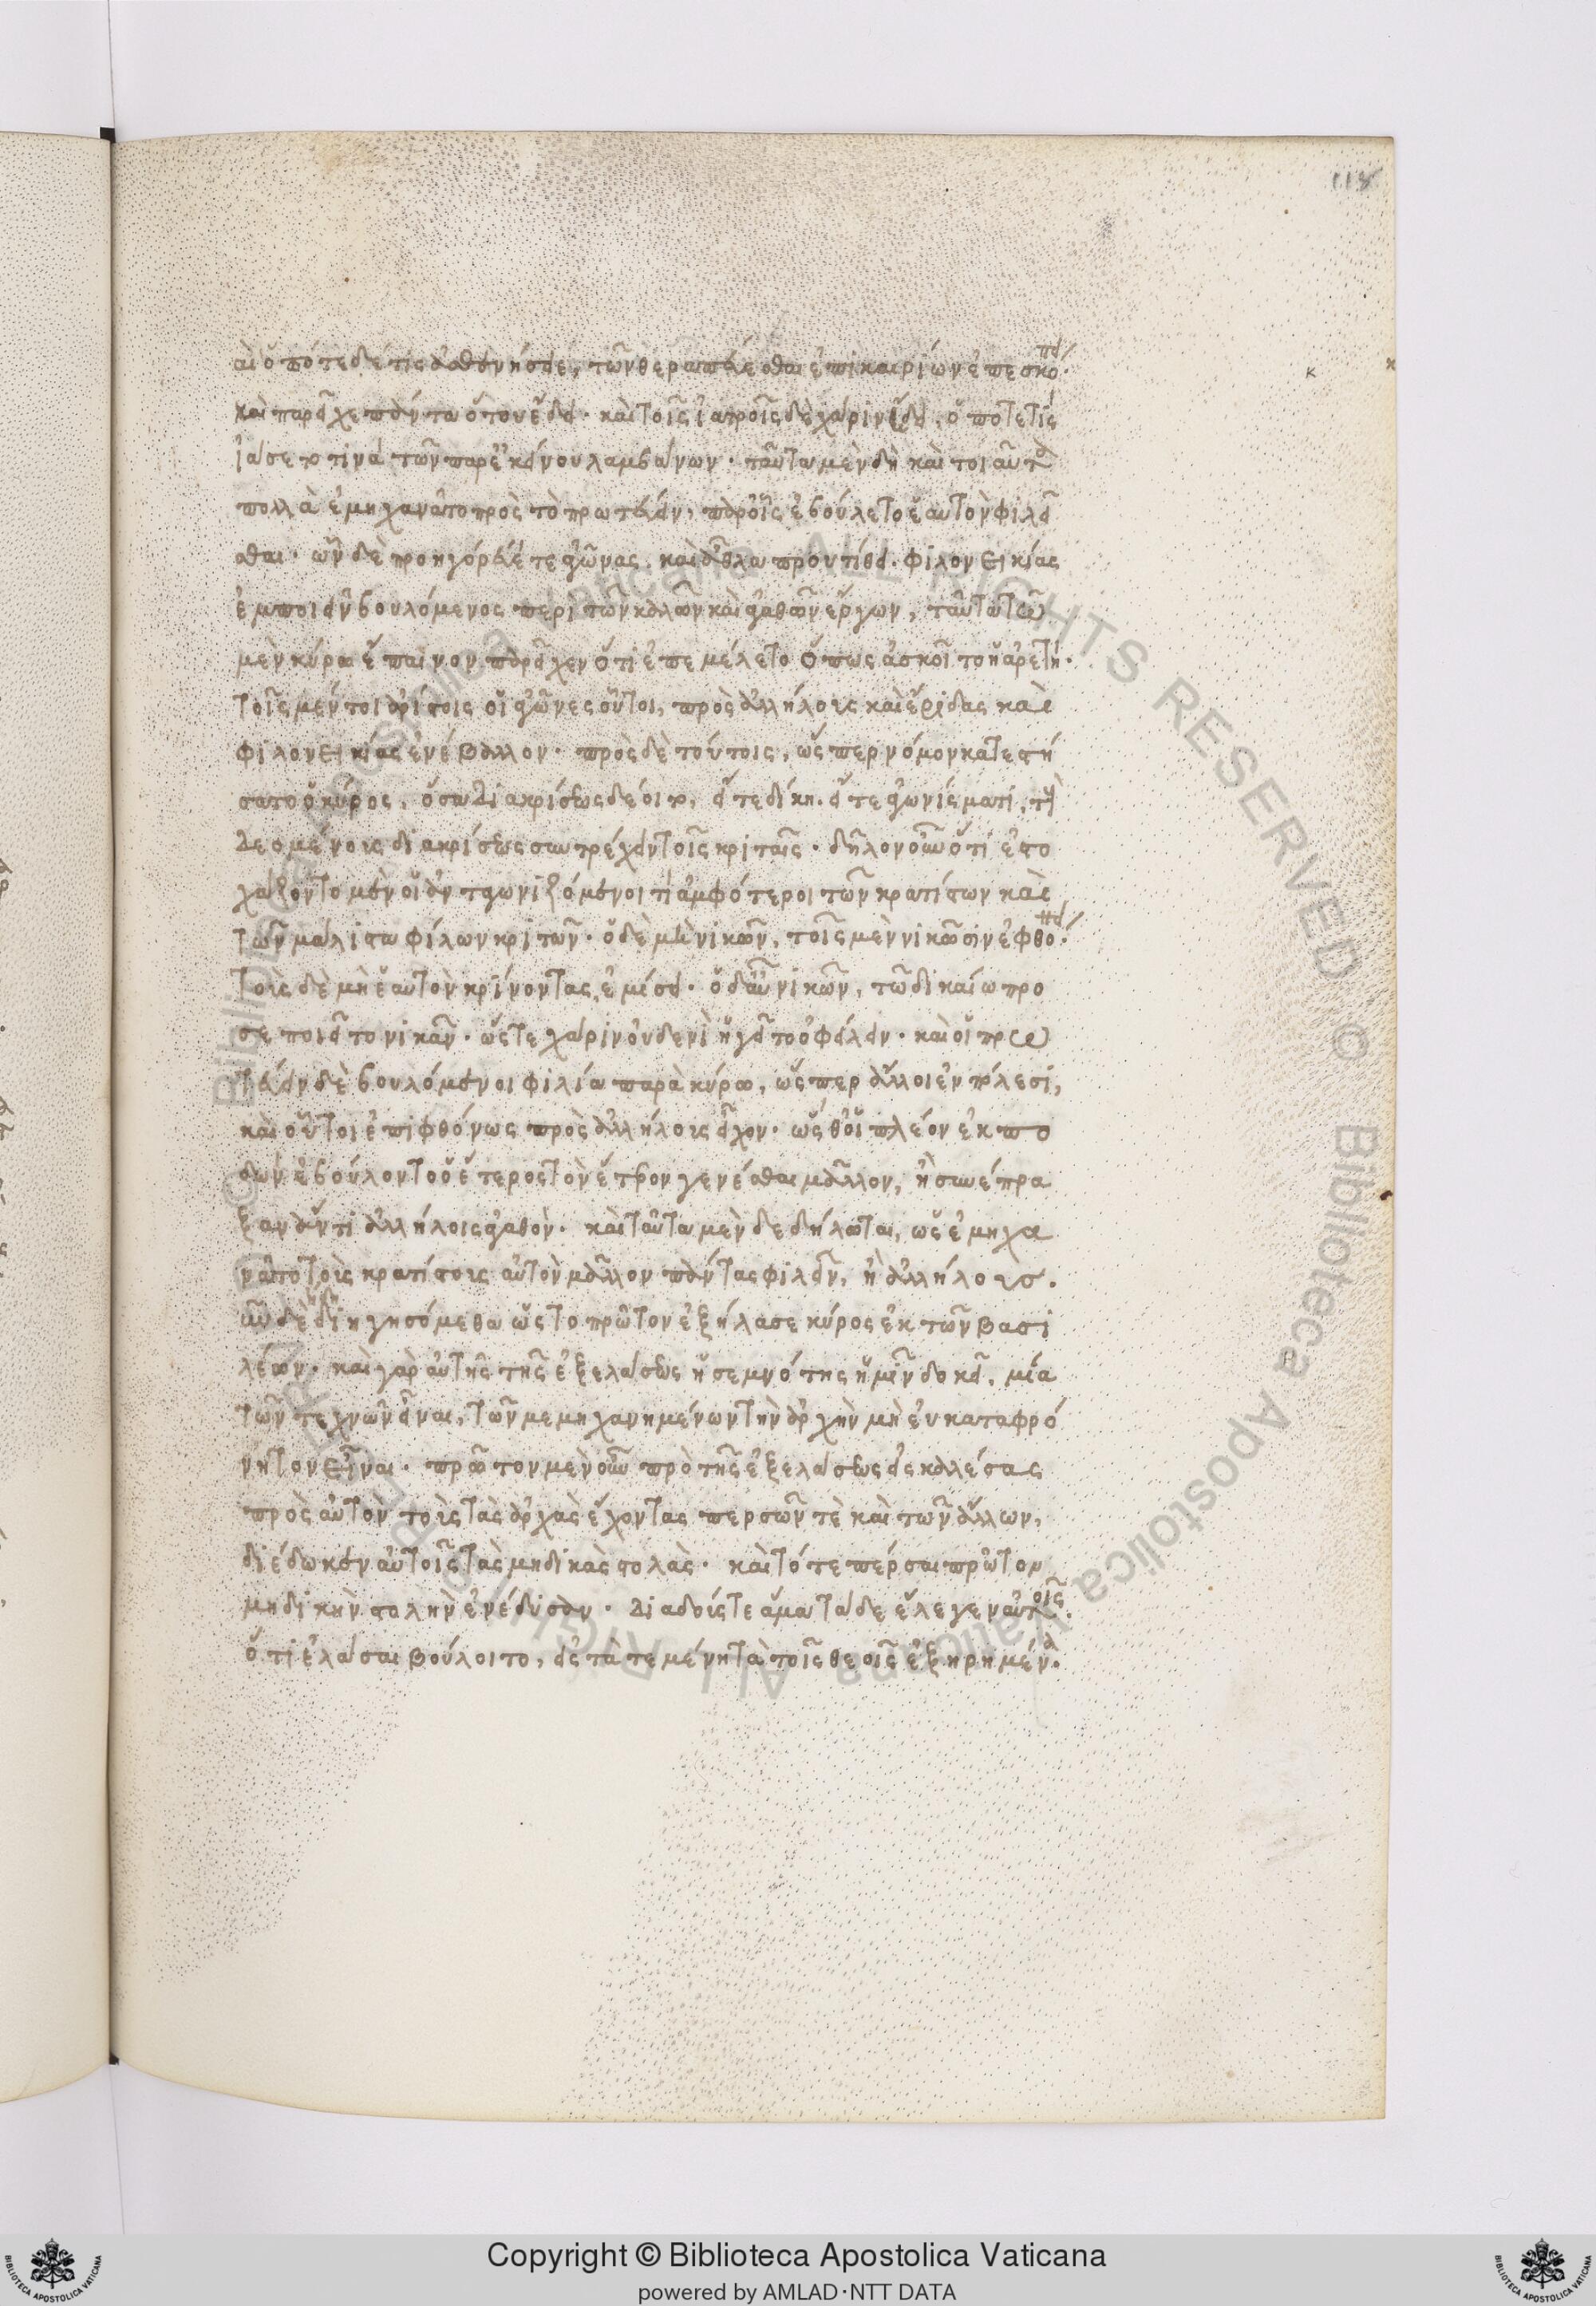 118
αι ὁπότε δέ τις ἀσθενήσειε, τῶν θεραπεύεσθαι ἐπικαιρίων ἐπεσκόπει.
καὶ παρεῖχε πάντα ὅτου ἔδει. καὶ τοῖς ἰατροῖς δὲ χάριν ᾔδει, ὁπότε τίς
ἰάσετό τινα τῶν παρ' ἐκείνου λαμβάνων. ταῦτα μὲν δὴ καὶ τοιαῦτα
πολλὰ ἐμηχανᾶτο πρὸς τὸ πρωτεύειν, παρ' οἷς ἐβούλετο ἑαυτὸν φιλεῖ
σθαι. ὧν δὲ προηγόρευέ τε ἀγῶνας, καὶ ἆθλα προυτίθει. φιλονεικίας
ἐμποιεῖν βουλόμενος περὶ τῶν καλῶν καὶ ἀγαθῶν ἔργων, ταῦτα τῶ
μὲν κύρω ἔπαινον παρεῖχεν ὅτι ἐπεμέλετο ὅπως ἀσκοῖτο ἡ ἀρετή.
τοῖς μέντοι ἀρίστοις οἱ ἀγῶνες οὗτοι, πρὸς ἀλλήλους καὶ ἔριδας καὶ
φιλονεικίας ἐνέβαλλον. πρὸς δὲ τούτοις, ὥσπερ νόμον κατεστή
σατο ὁ κῦρος, ὅσα διακρίσεως δέοιτο, εἴτε δίκη. εἴτε ἀγωνίσματι, τοὺς
δεομένους διακρίσεως συντρέχειν τοῖς κριταῖς. δῆλον οὖν ὅτι ἐστο
χάζοντο μὲν οἱ ἀνταγωνιζόμενοί τι ἀμφότεροι τῶν κρατίστων καὶ
τῶν μάλιστα φίλων κριτῶν. ὁ δὲ μὴ νικῶν, τοῖς μὲν νικῶσιν ἐφθόνει.
τοὺς δὲ μὴ ἑαυτὸν κρίνοντας, ἐμίσει. ὁ δ' αὖ νικῶν, τῶ δικαίω προ
σεποιεῖτο νικᾶν. ὥστε χάριν οὐδενὶ ἡγεῖτο ὀφείλειν. καὶ οἱ πρω
τεύειν δὲ βουλόμενοι φιλία παρὰ κύρω, ὥσπερ ἄλλοι ἐν πόλεσι,
καὶ οὗτοι ἐπιφθόνως πρὸς ἀλλήλους εἶχον. ὥσθ' οἱ πλέον ἐκπο
δὼν ἐβούλοντο ὁ ἕτερος τὸν ἕτερον γενέσθαι μᾶλλον, ἢ συνέπρα
ξαν ἄν τι ἀλλήλοις ἀγαθόν. καὶ ταῦτα μὲν δεδήλωται, ὡς ἐμηχα
νᾶτο τοὺς κρατίστους αὐτὸν μᾶλλον πάντας φιλεῖν, ἢ ἀλλήλους.
νῦν δὲ ἤδη διηγησόμεθα ὡς τὸ πρῶτον ἐξήλασε κῦρος ἐκ τῶν βασι
λείων. καὶ γὰρ αὐτῆς τῆς ἐξελάσεως ἡ σεμνότης ἡμῖν δοκεῖ, μία
τῶν τεχνῶν εἶναι, τῶν μεμηχανημένων τὴν ἀρχὴν μὴ εὐκαταφρό
νητον εἶναι. πρῶτον μὲν οὖν πρὸ τῆς ἐξελάσεως εἰσκαλέσας
πρὸς αὐτὸν τοὺς τὰς ἀρχὰς ἔχοντας περσῶν τὲ καὶ τῶν ἄλλων,
διέδωκεν αὐτοῖς τὰς μηδικὰς στολάς. καὶ τότε πέρσαι πρῶτον
μηδικὴν στολὴν ἐνέδυσαν. διαδούς τε ἅμα τάδε ἔλεγεν αὐτοῖς.
ὅτι ἐλάσαι βούλοιτο, εἰς τὰ τεμένη τὰ τοῖς θεοῖς ἐξηρημένα.
Copyright © Biblioteca Apostolica Vaticana
powered by AMLAD·NTT DATA